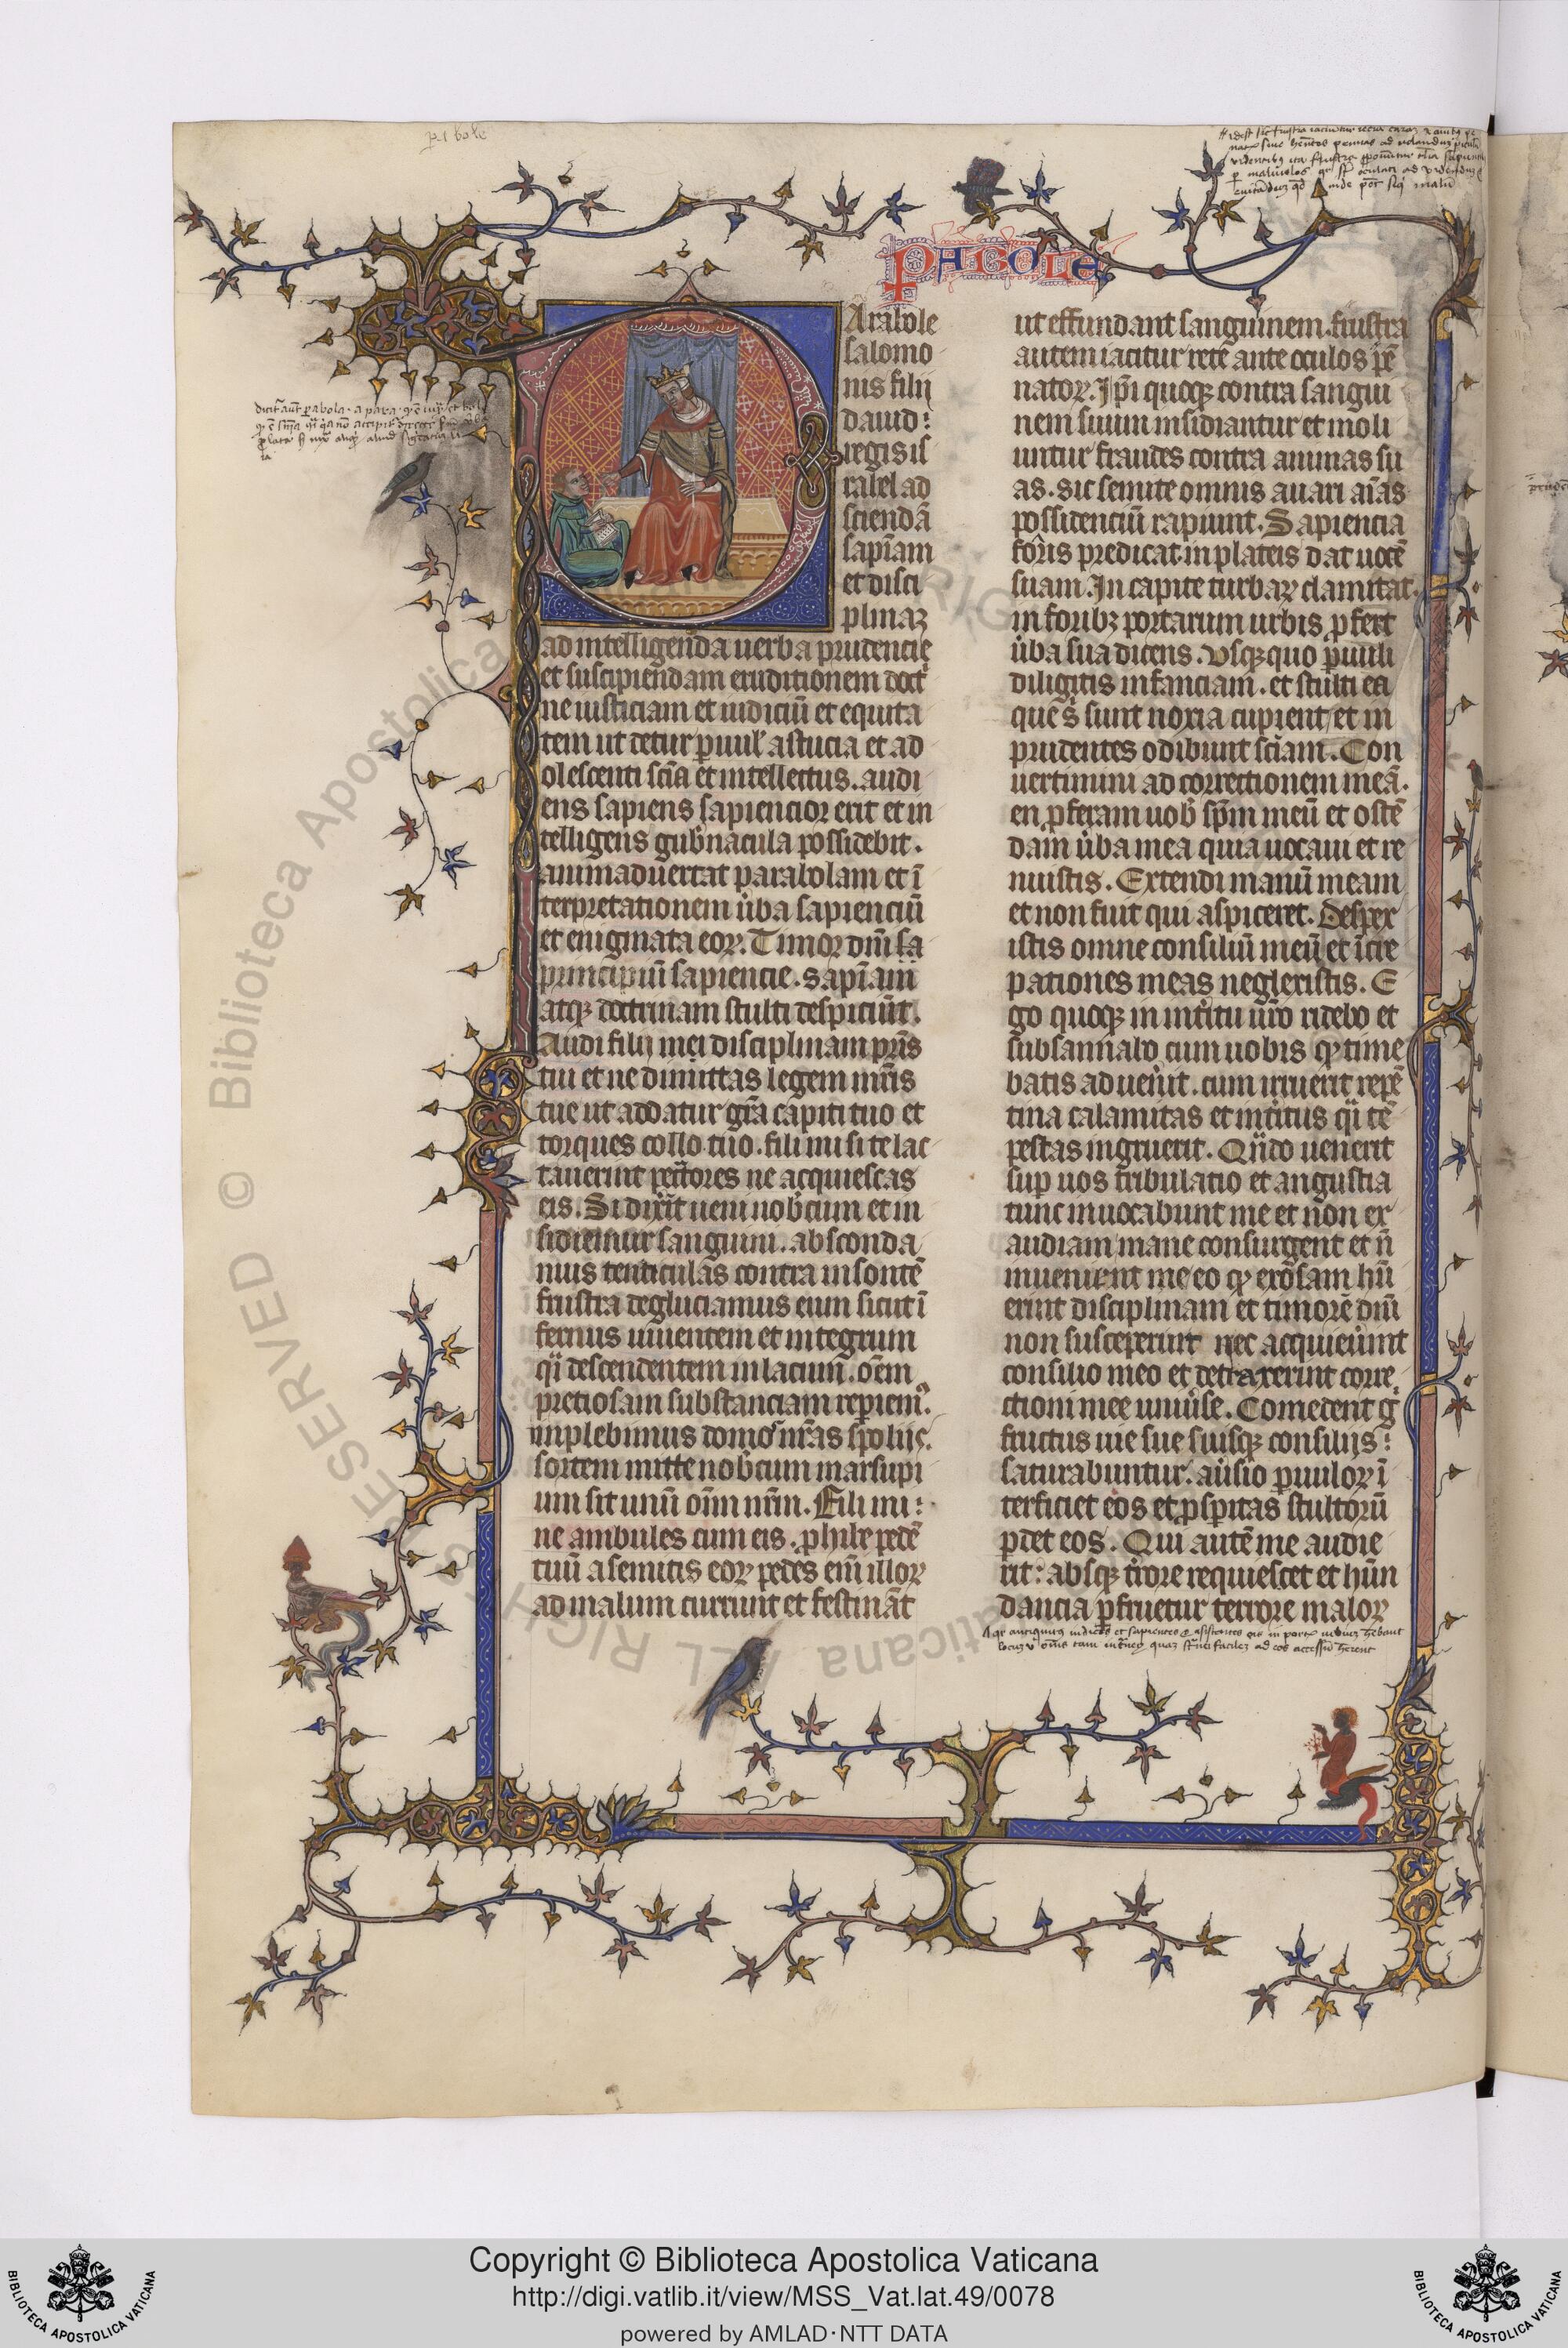 parabole
PARABOLE
Arabole
salomo
nis filij
dauid:
regis is
rahel ad
sciendā
sapīam
et disci
plinaꝫ
ad intelligenda uerba prudencie
et suscipiendam eruditionem doct
ne iusticiam et iudiciū et equita
tem ut detur puul' astucia et ad
olescenti scīa et intellectus. audi
ens sapiens sapiencior erit et in
telligens gub'nacula possidebit.
animaduertat parabolam et ī
terpretationem ùba sapienciū
et enigmata eoꝝ. Timor dnī
principiū sapiencie. sapīam
atqꝫ doctrinam stulti despiciūt.
Audi fili mi disciplinam pr̄is
tui et ne dimittas legem mr̄is
tue ut addatur gr̄a capiti tuo et
torques collo tuo. fili mi si te lac
tauerint pctōres ne acquiescas
eis. Si dixerīt ueni nob'cum et in
sidiemur sanguini. absconda
mus tenticulas contra insontē
frustra degluciamus eum sicut ī
fernus uiuentem et integrum
qͣi descendentem in lacum. oēm
pretiosam substanciam repiemꝰ.
implebimus domos nr̄as spolijs.
sortem mitte nob'cum marsupi
um sit unū oīm nr̄m. Fili mi:
ne ambules cum eis. phibe pedē
tuū a semitis eoꝝ pedes enī illoꝝ
ad malum currunt et festināt
ut effundant sanguinem. frustra
autem iacitur rete ante oculos pē
natoꝝ. Ip̄i quoqꝫ contra sangui
nem suum insidiantur et moli
untur fraudes contra animas su
as. sic semite omnis auari aīas
possidenciū rapiunt. Sapiencia
foris predicat in plateis dat uocē
suam. In capite turbaꝝ clamitat.
in foribꝫ portarum urbis pfert
ùba sua dicens. vsqꝫquo puuli
diligitis infanciam. et stulti ea
que s' sunt noxia cupient et in
prudentes odibunt scīam. Con
uertimini ad correctionem meā.
en pferam uob' sp̄m meū et ostē
dam ùba mea quia uocaui et re
nuistis. Extendi manū meam
et non fuit qui aspiceret. despex
istis omne consiliū meū et īcre
pationes meas neglexistis. E
go quoqꝫ in intitu ur̄o ridebo et
subsannabo cum uobis qꝫ time
batis aduenīt. cum irruerit repē
tina calamitas et intitus qͣi tē
pestas ingruerit. Qn̄do uenerit
sup uos tribulatio et angustia
tunc inuocabunt me et non ex
audiam mane consurgent et n̄
inuenient me eo qꝫ exosam hū
erint disciplinam et timorē dnī
non susceperint nec acquieùint
consilio meo et detraxerint corre
ctioni mee uniùse. Comedent g'
fructus uie sue suisqꝫ consilijs:
saturabuntur. aùsio puuloꝝ ī
terficiet eos et pspitas stultorū
pdet eos. Qui autē me audie
rit: absqꝫ trrore requiescet et hūn
dancia pfruetur terrore maloꝝ
© Biblioteca Apostolica Vaticana ALL RIGHTS RESERVED
Copyright © Biblioteca Apostolica Vaticana
http://digi.vatlib.it/view/MSS_Vat.lat.49/0078
powered by AMLAD·NTT DATA
BIBLIOTECA APOSTOLICA VATICANA
BIBLIOTECA APOSTOLICA VATICANA